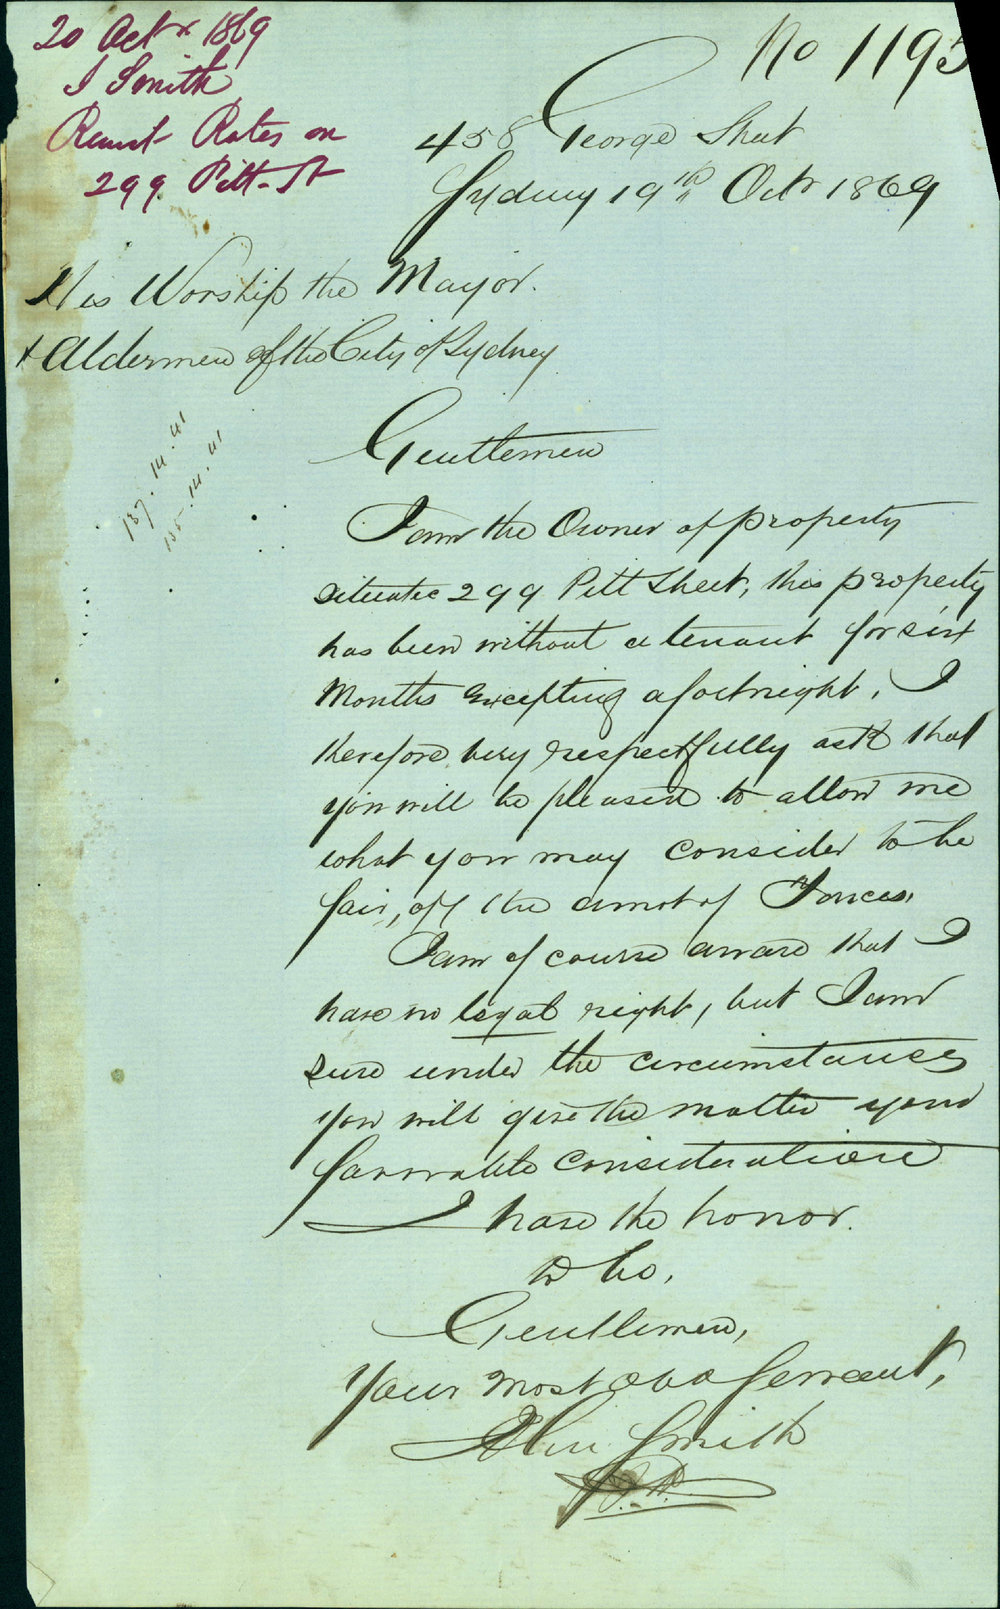 20 Oct 1869
J Smith
Remit Rates on
299 Pitt St
No 1195
458 George Street
Sydney 19th Octr 1869
His Worship the Mayor.
& Aldermen of the City of Sydney
137.14.41
135.14.41
Gentlemen
I am the Owner of property
situate 299 Pitt Street, this property
has been without a tenant for six
Months excepting a fortnight, I
therefore very respectfully ask that
you will be pleased to allow me
what you may consider to be
fair, off the amot of Taxes.
I am of course aware that I
have no legal right, but I am
sure under the circumstances
you will give the matter your
favorable consideration
I have the honor.
to be,
Gentlemen,
Your most obd Servant,
John Smith